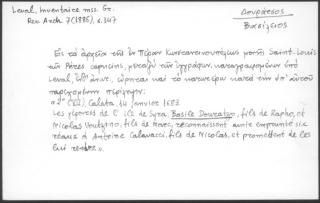 Leval, Inventaire mss. Gr.
Rev. Arch. 7 (1886), σ. 347
Δουράτσος
Βασίλειος
Εἰς τὰ ἀρχεῖα τῆς ἐν Πέραν Κωνσταντινουπόλεως μονῆς Saint-Louis
τῶν Pères capucins, μεταξὺ τῶν ἐγγράφων, καταγραφομένων ὑπὸ
Leval, ὑπ' ἀριθ. εὕρηται καὶ τὸ κατωτέρω κατὰ τὴν ὑπ' αὐτοῦ
περίληψιν:
Galata, 14 janvier 1683
Les de l'île de Syra, Basile Douratzo, fils de Rapho, et
Nicolas fils de reconnaissent avoir emprunté six
réaux à Antoine Calavacci, fils de Nicolas, et promettent de les
lui rendre".